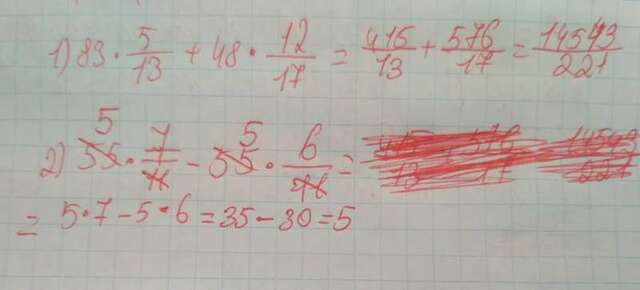 1) 83 · 5/13 + 48 · 12/17 = 415/13 + 576/17 = 14543/221
2) 55 5 · 7/11 - 55 5 · 6/11 =
= 5·7 - 5·6 = 35 - 30 = 5